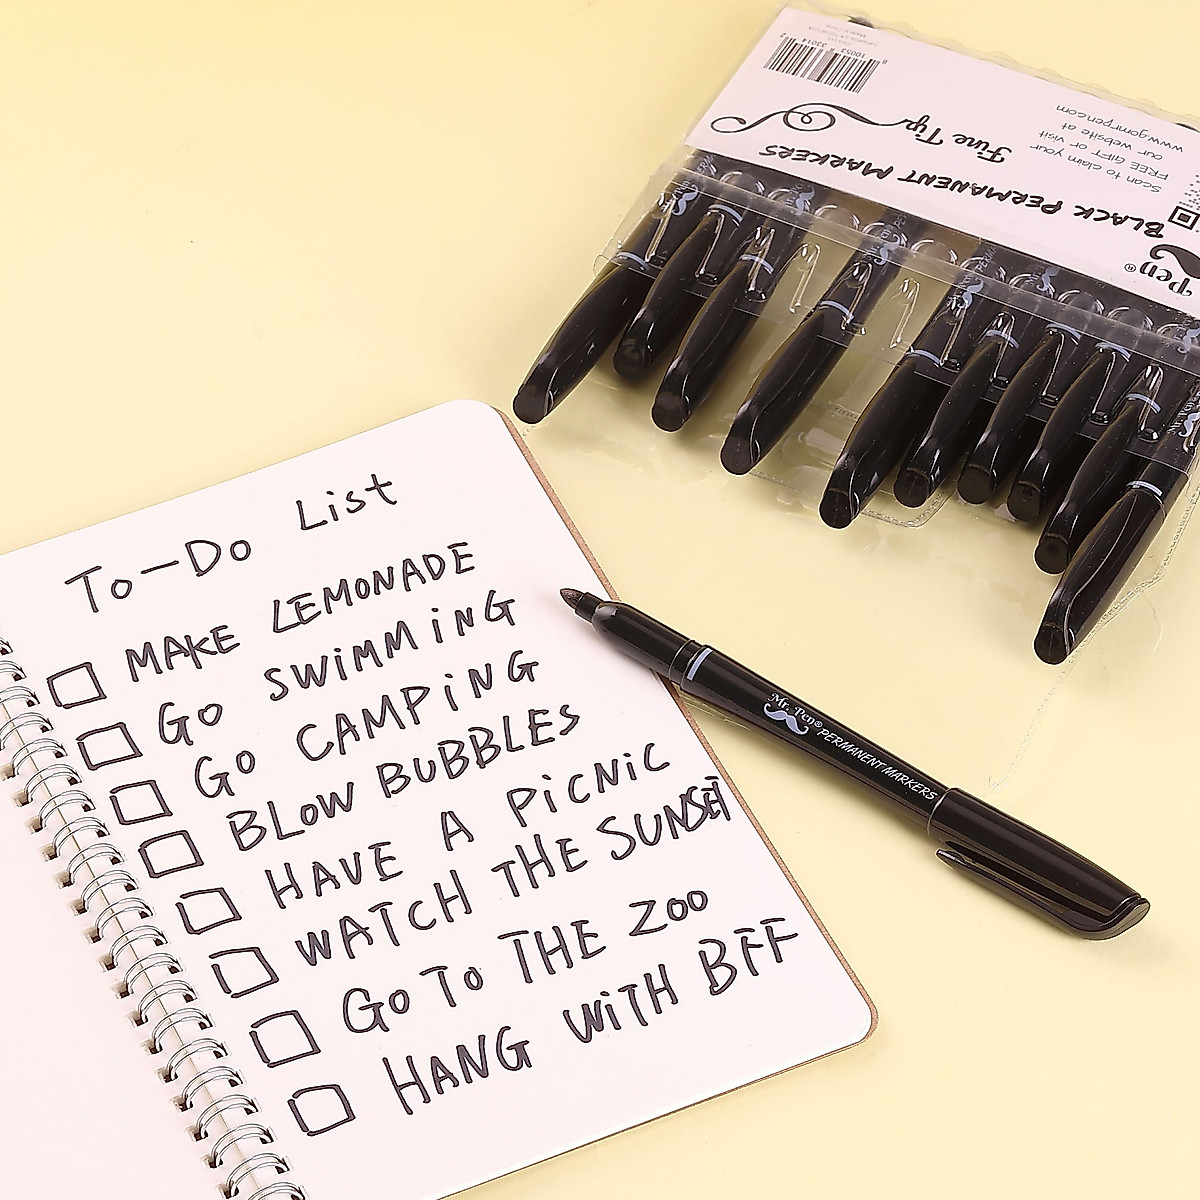 To-Do List
MAKE LEMONADE
GO SWiMMiNG
GO CAMPiNG
BLOW BUBBLES
HAVE A PiCNiC
WATCH THE SUNSET
GO TO THE ZOO
HANG WiTH BFF
Mr. Pen® PERMANENT MARKERS
Pen®
BLACK PERMANENT MARKERS
Fine Tip
Scan to claim your
FREE GIFT or visit
our website at
www.gomrpen.com
8 10053 33014 2